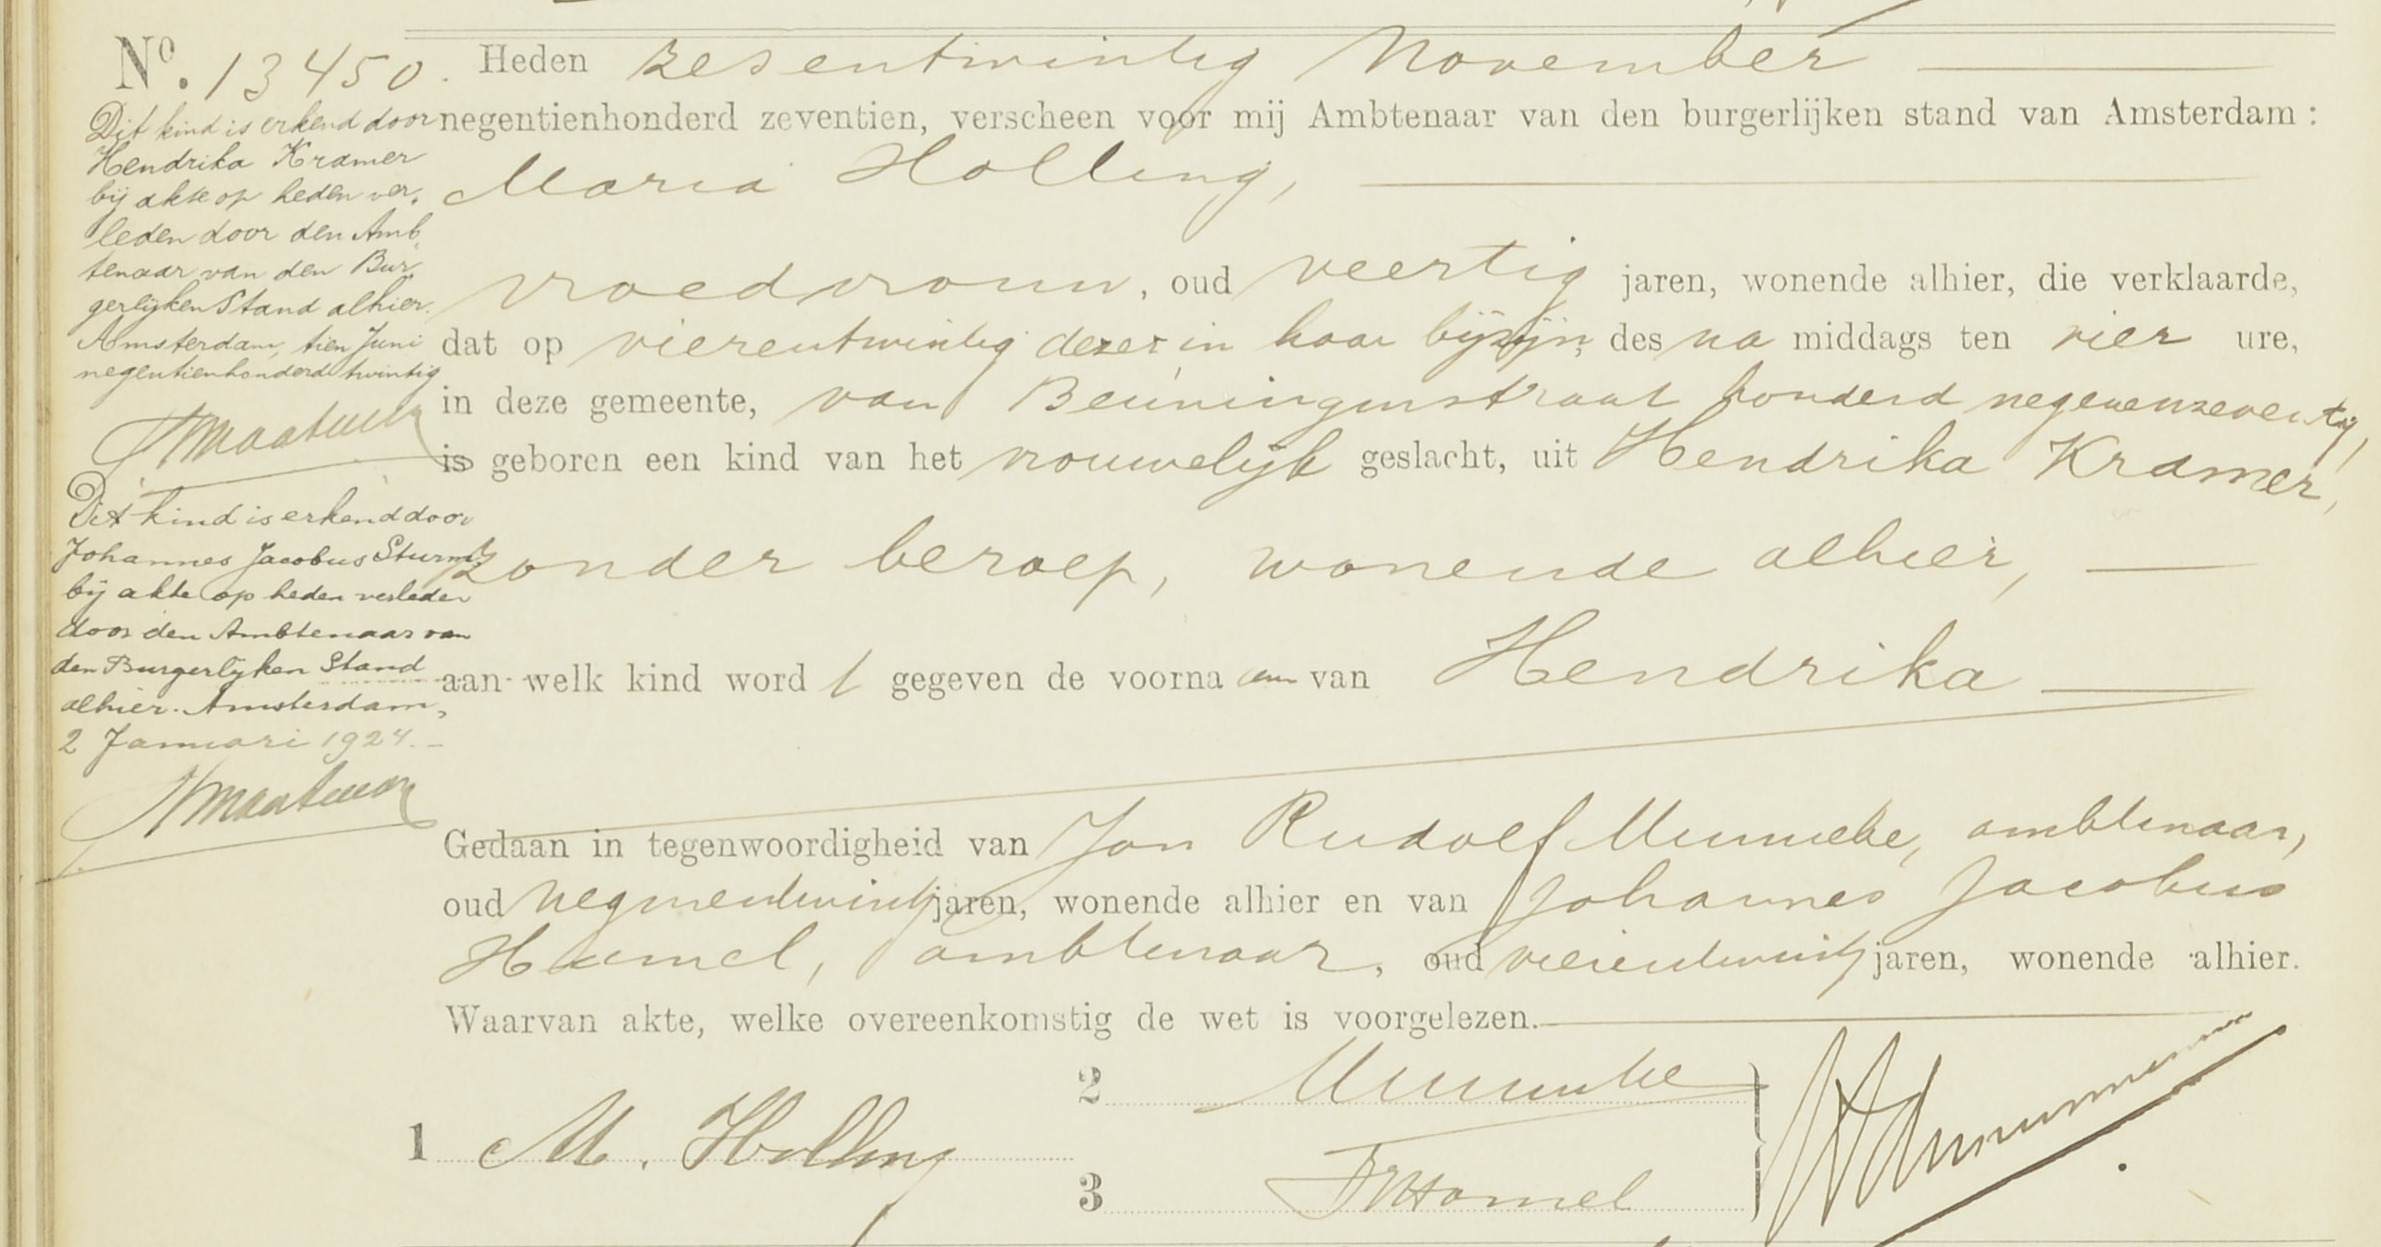 No. 13450. Heden zesentwintig November
negentienhonderd zeventien, verscheen voor mij Ambtenaar van den burgerlijken stand van Amsterdam:
Maria Holling,
vroedvrouw, oud veertig jaren, wonende alhier, die verklaarde,
dat op vierentwintig dezer in haar bijzijn, des na middags ten vier ure,
in deze gemeente, van Beuningenstraat honderd negenenzeventig,
is geboren een kind van het vrouwelijk geslacht, uit Hendrika Kramer,
zonder beroep, wonende alhier,
aan welk kind word t gegeven de voorna am van Hendrika
Gedaan in tegenwoordigheid van Jan Rudolf Munneke, ambtenaar,
oud negenentwintig jaren, wonende alhier en van Johannes Jacobus
Hamel, ambtenaar, oud vierentwintig jaren, wonende alhier.
Waarvan akte, welke overeenkomstig de wet is voorgelezen.
1 M. Holling
2 Munneke
3 Hamel
Dit kind is erkend door
Hendrika Kramer
bij akte op heden ver-
leden door den Amb-
tenaar van den Bur-
gerlijken Stand alhier.
Amsterdam, tien Juni
negentienhonderd twintig
Dit kind is erkend door
Johannes Jacobus Sturm
bij akte op heden verleden
door den Ambtenaar van
den Burgerlijken Stand
alhier. Amsterdam,
2 Januari 1924.